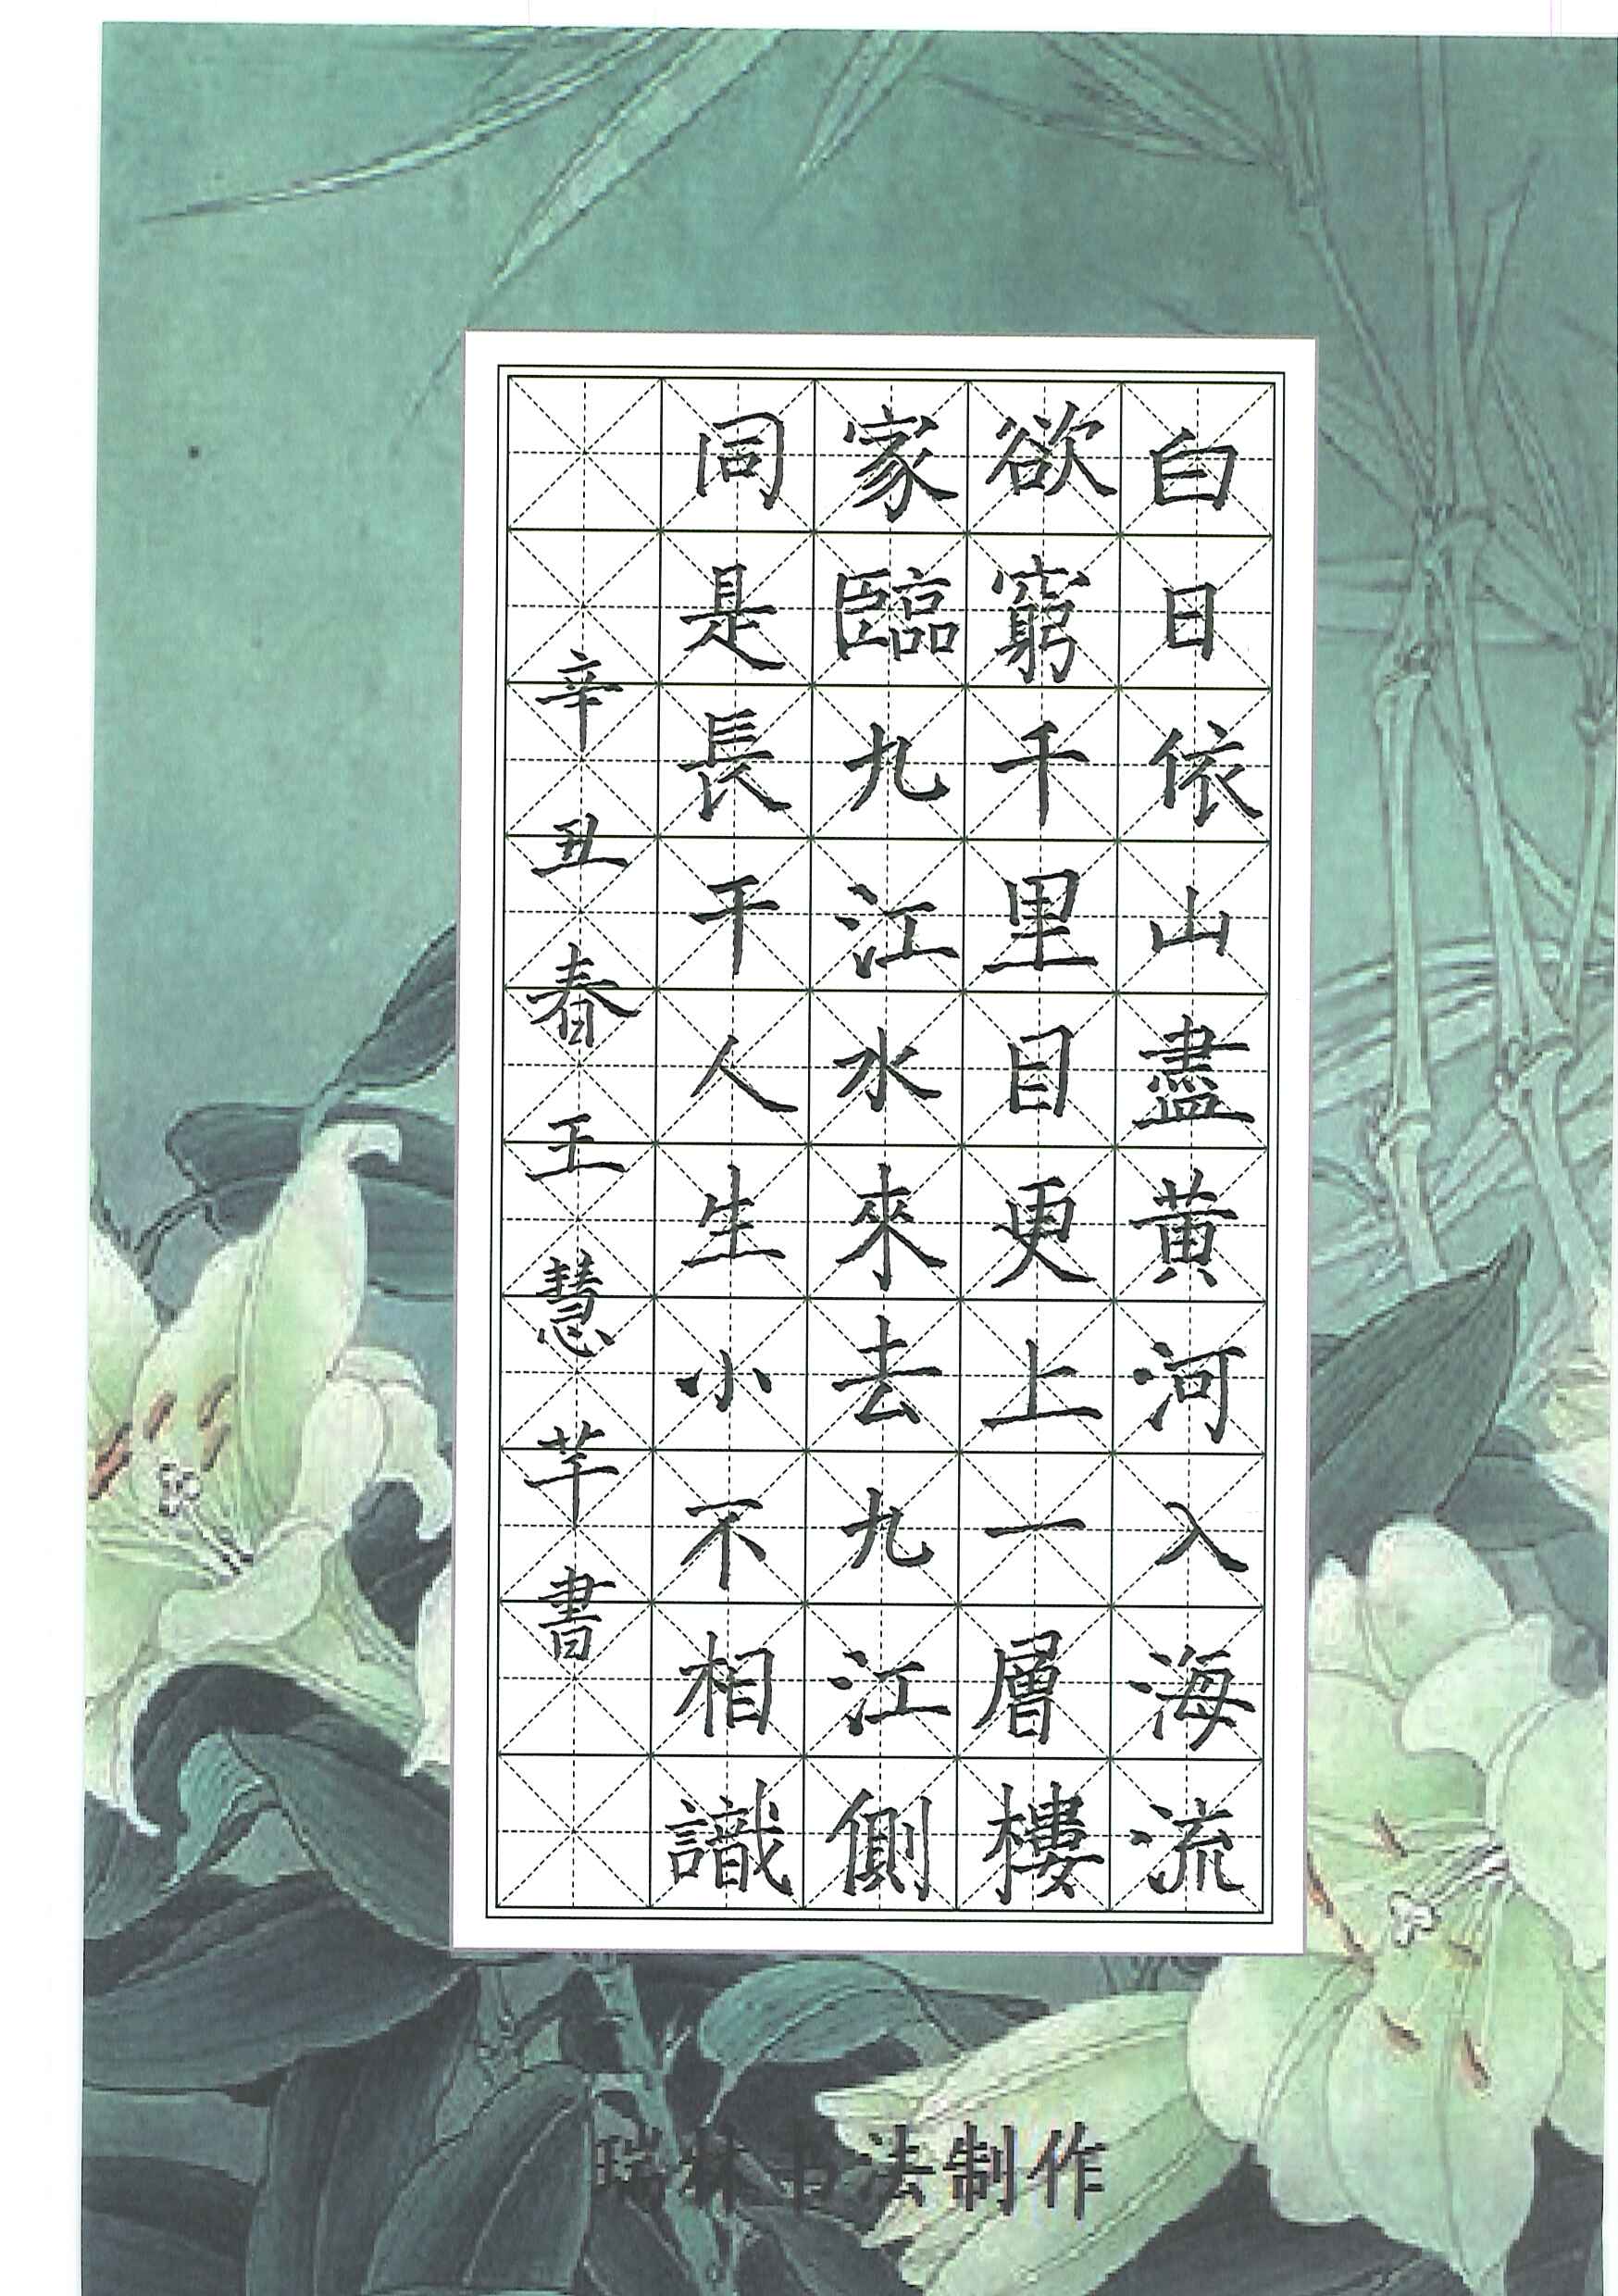 白日依山盡黄河入海流
欲窮千里目更上一層樓
家臨九江水來去九江側
同是長干人生小不相識
辛丑春王慧芊書
瑞林书法制作